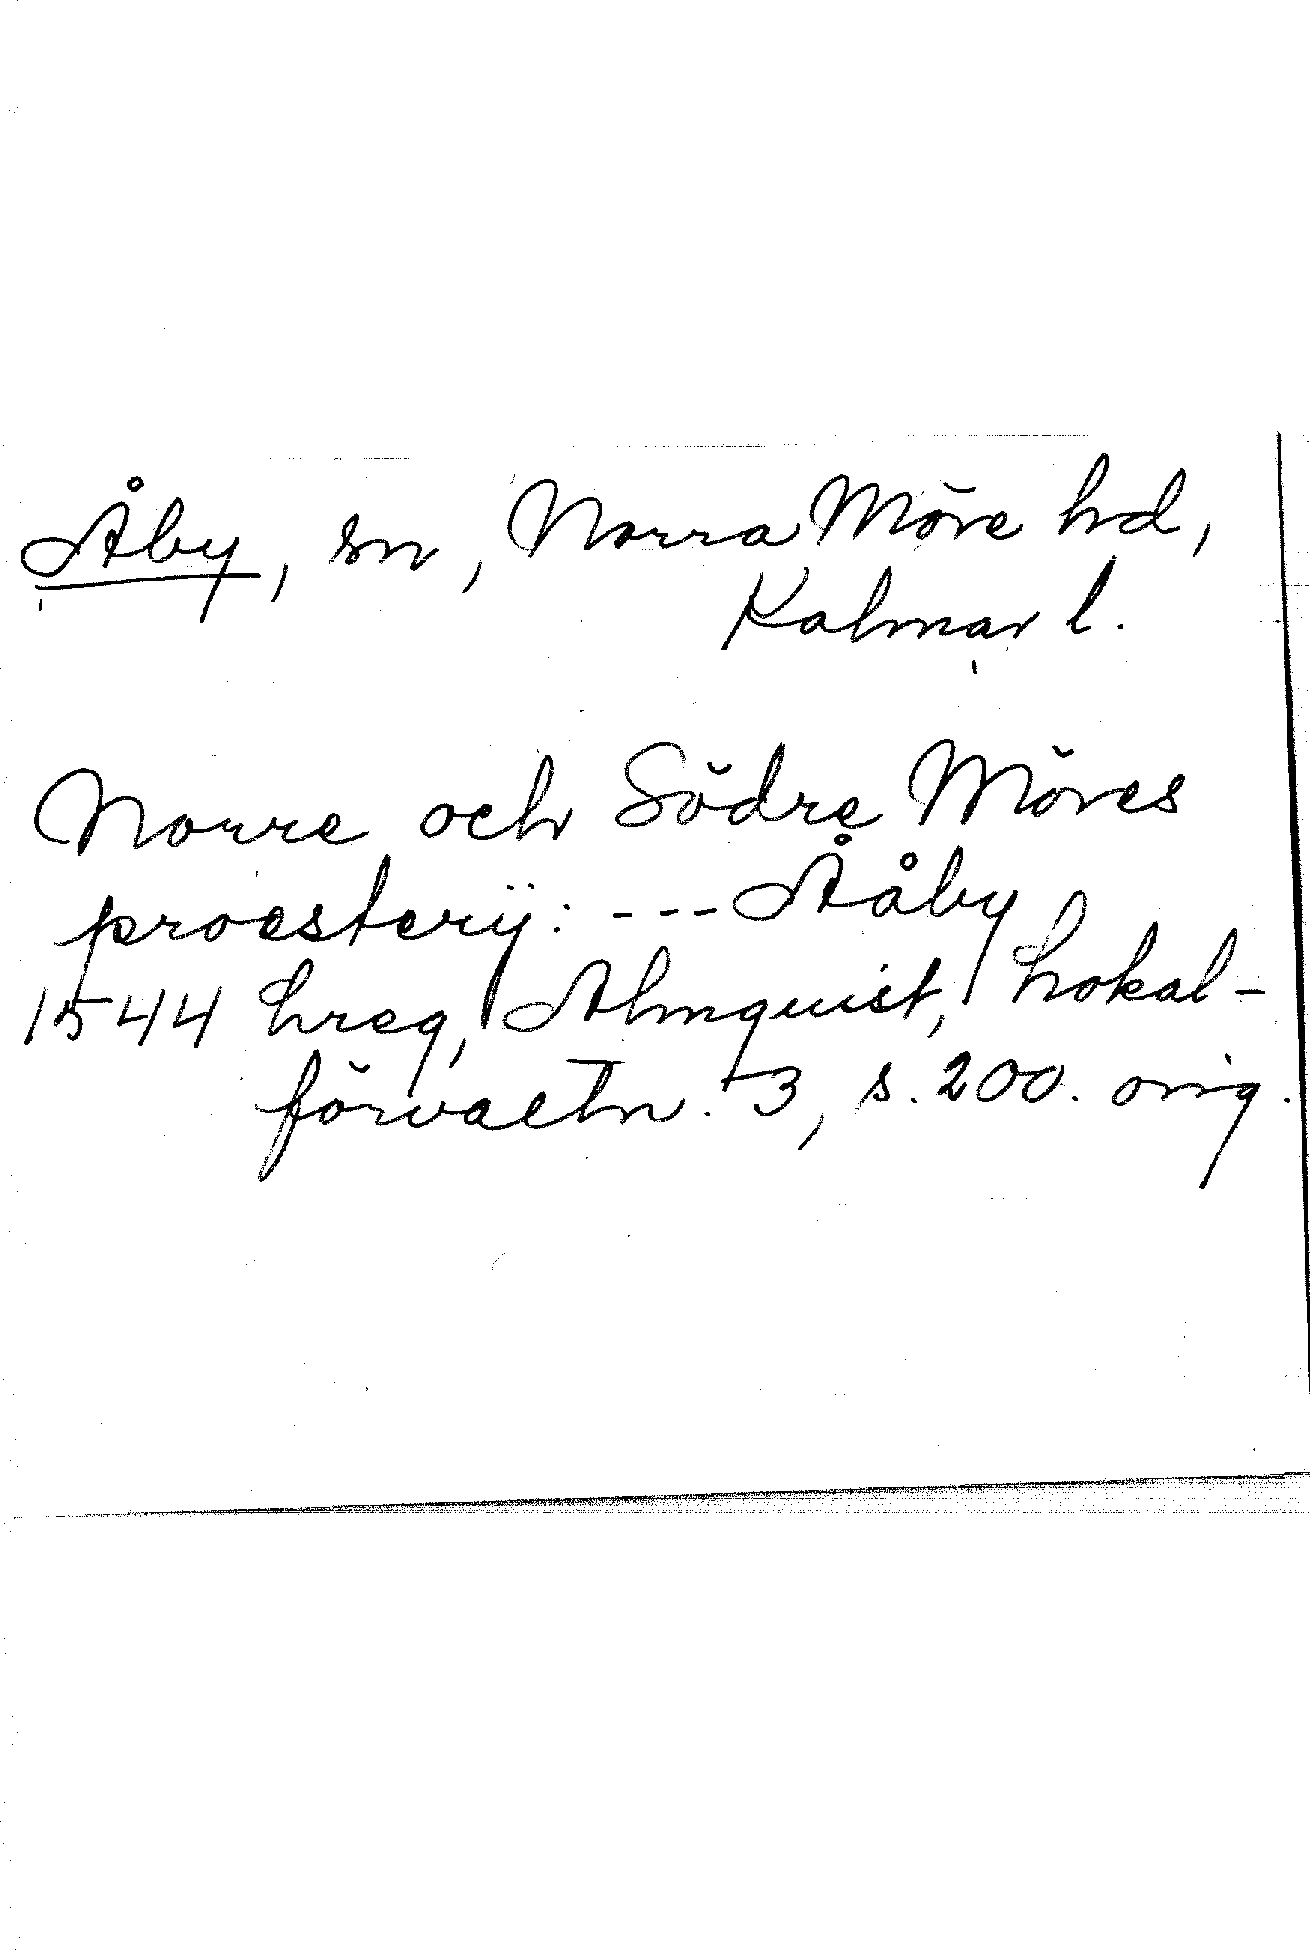 Åby, sn, Norra Möre hd,
Kalmar l.
Norre och Södre Möres
proesterÿ: --- Ååby
1544 hreg, Almquist, Lokal-
förvaltn. 3, s. 200. orig.